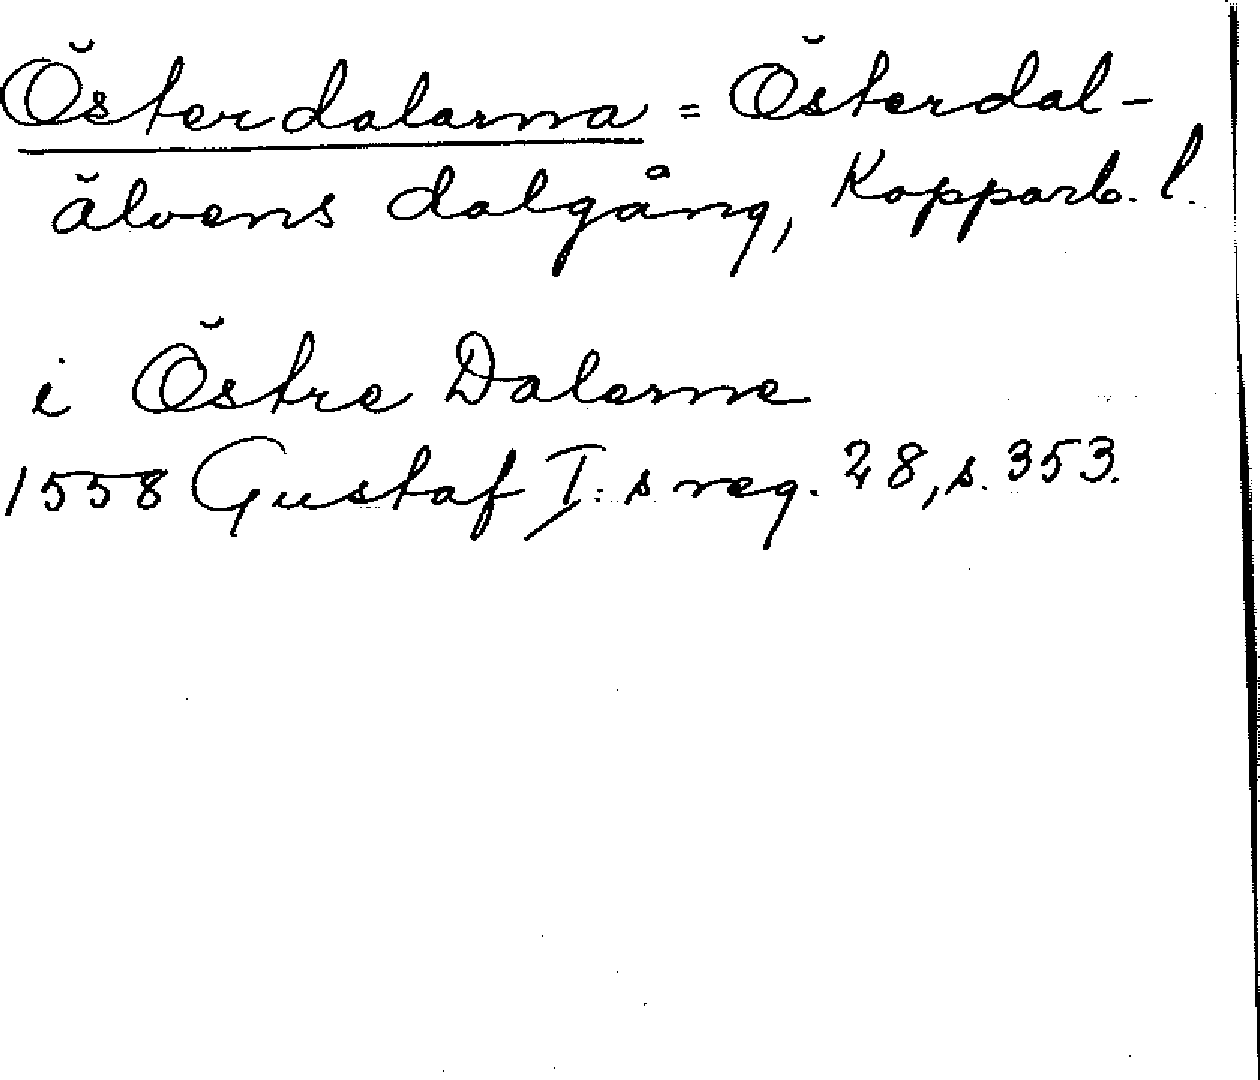 Österdalarna = Österdal-
älvens dalgång, Kopparb. l.
i Östre Dalerne
1558 Gustaf I:s reg. 28, s. 353.